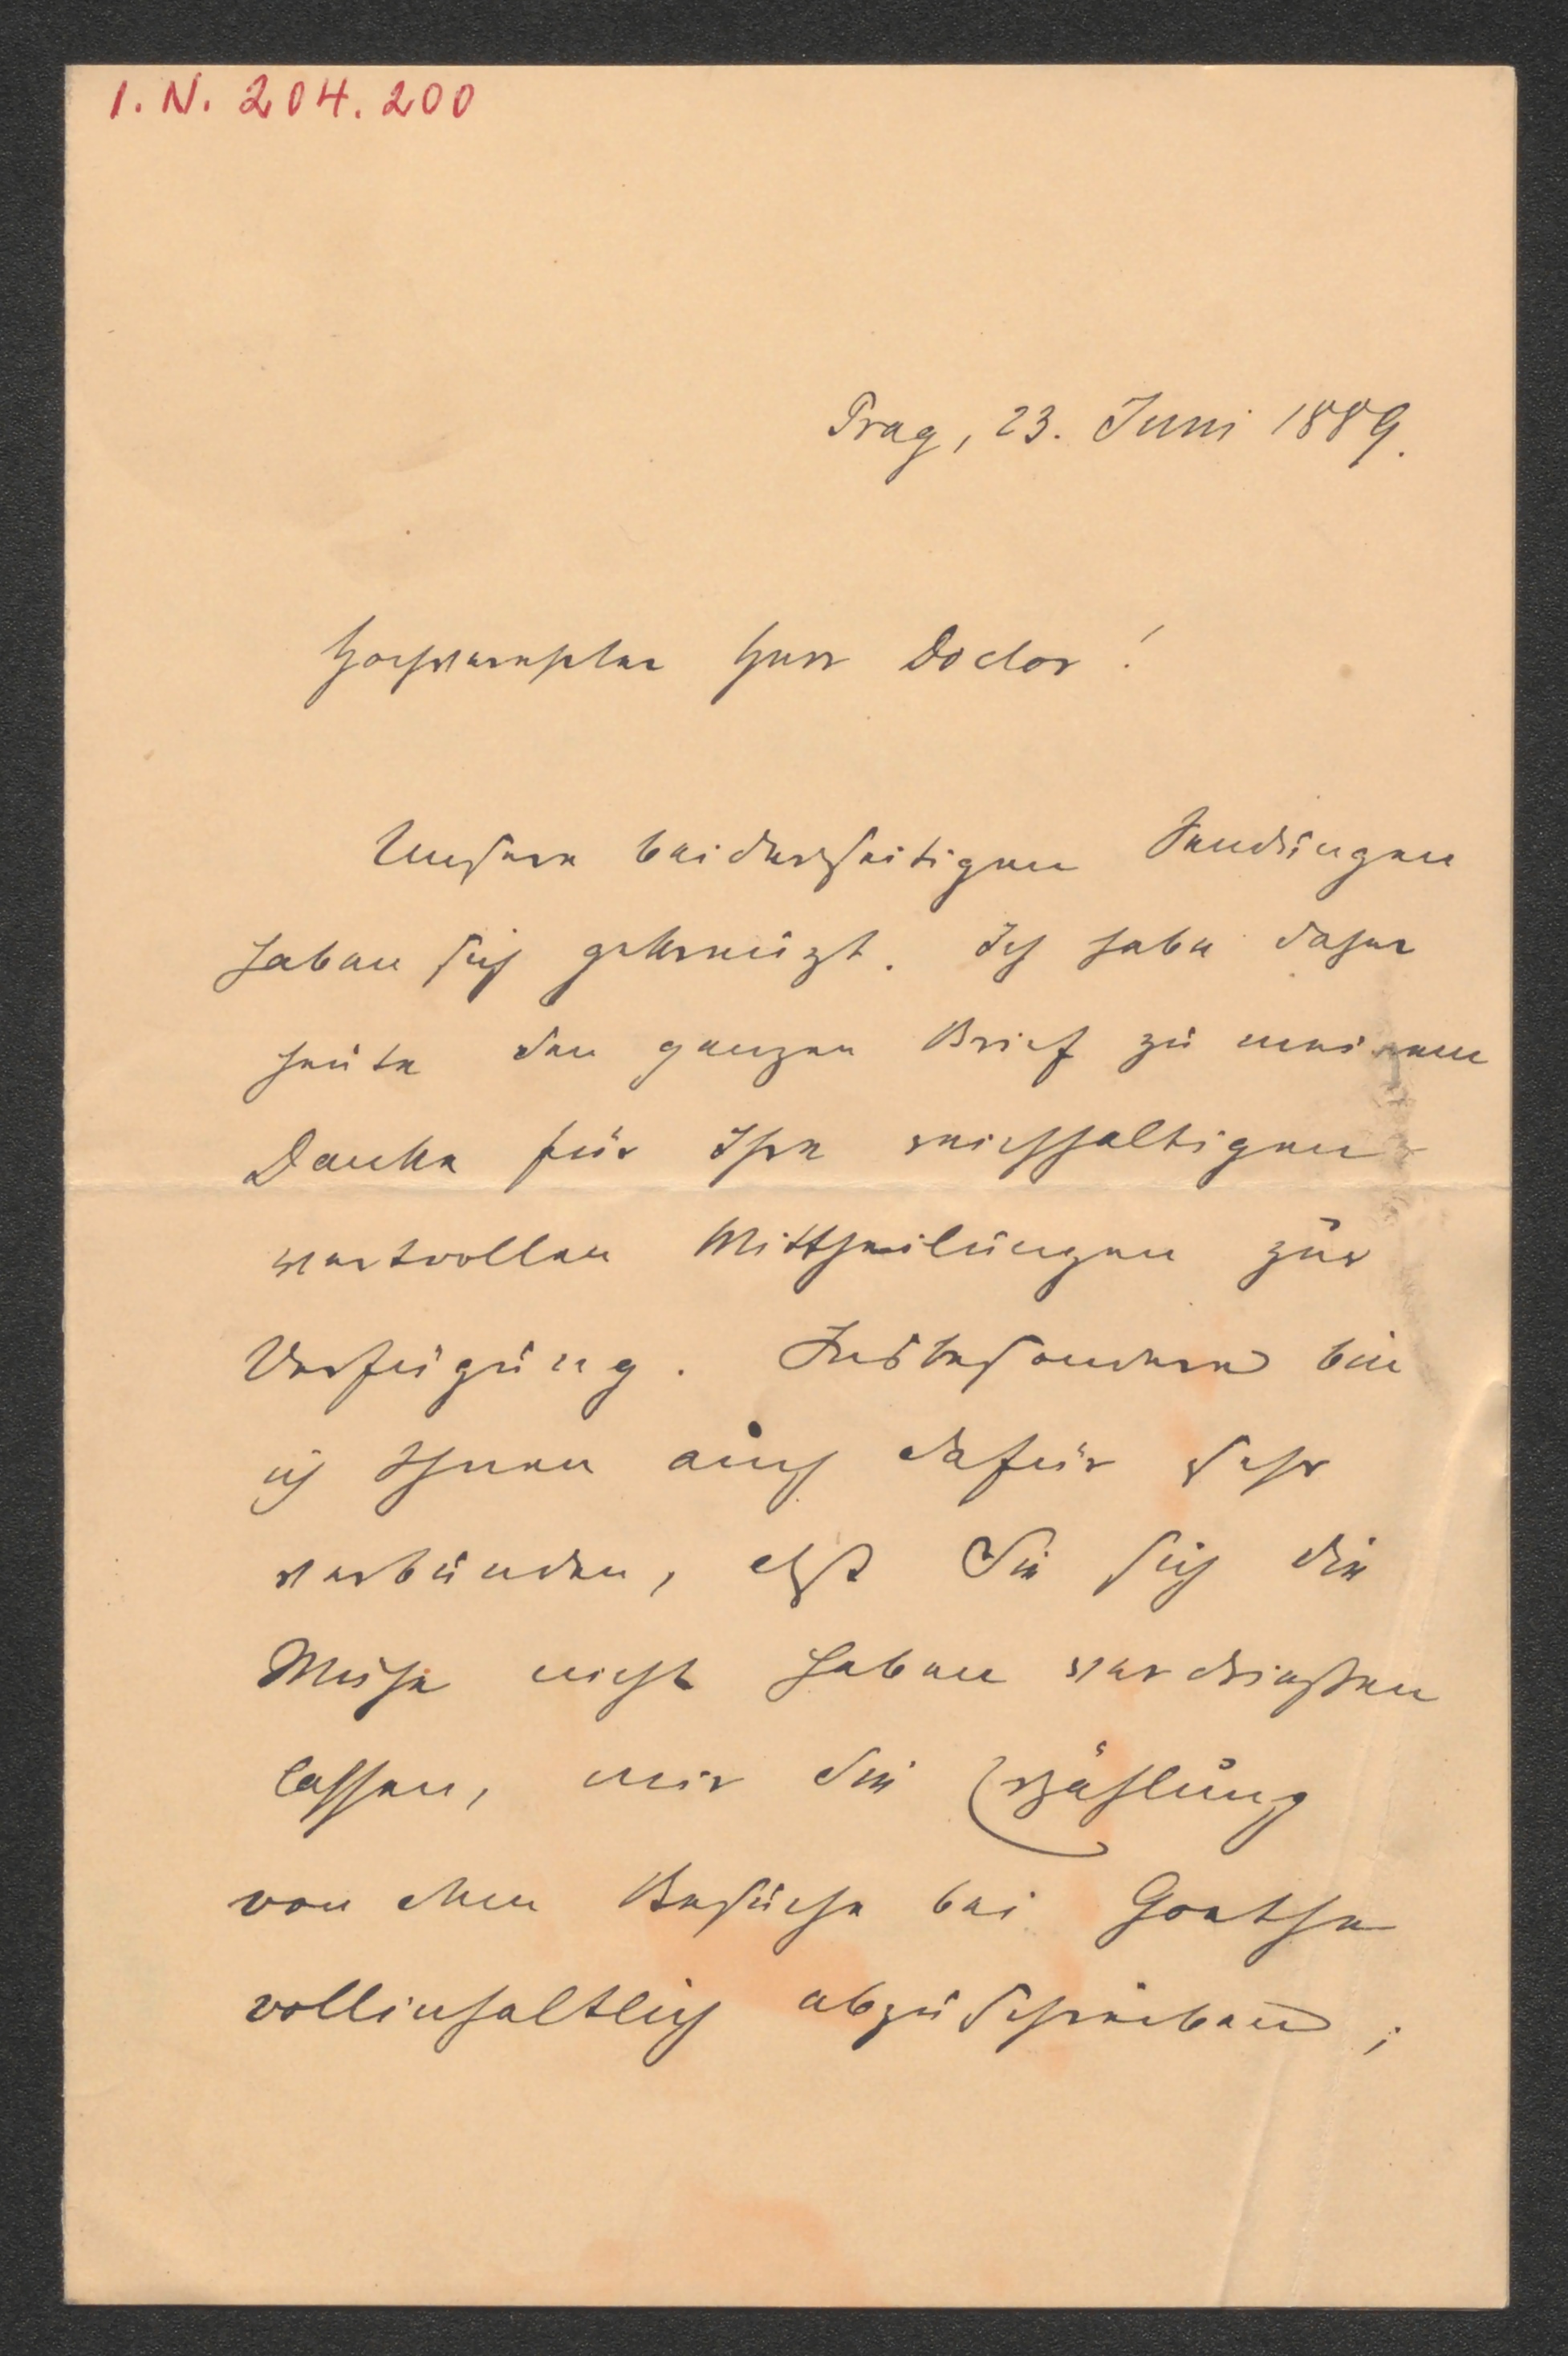 I. N. 204.200
Prag, 23. Juni 1889.
Hochverehrter Herr Doctor!
Unsere beiderseitigen Sendungen
haben sich gekreuzt. Ich habe daher
heute den ganzen Brief zu meinem
Danke für Ihre reichhaltigen
wertvollen Mittheilungen zur
Verfügung. Insbesondere bin
ich Ihnen auch dafür sehr
verbunden, dß Sie sich die
Mühe nicht haben verdrießen
lassen, mir die Erzählung
von dem Besuche bei Goethe
vollinhaltlich abzuschreiben;